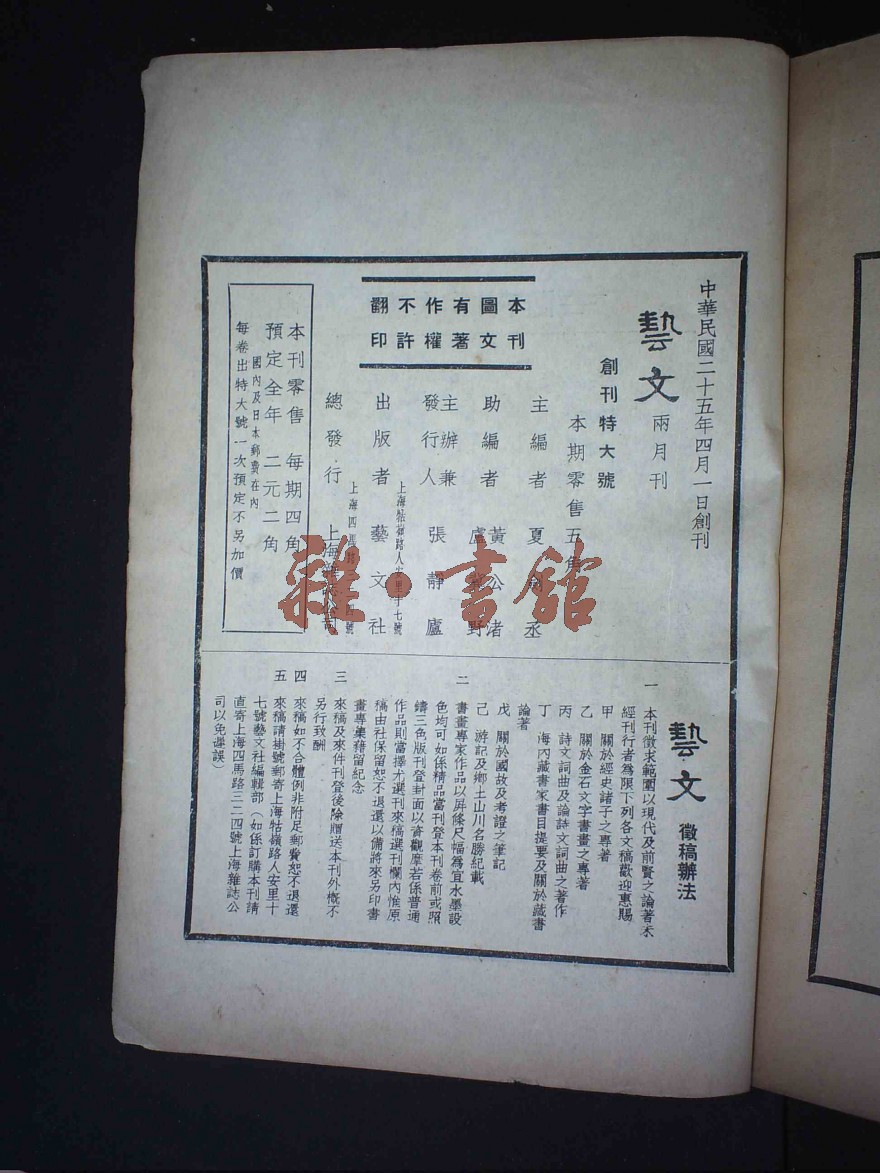 中華民國二十五年四月一日創刊
藝文 兩月刊
創刊特大號
本期零售五角
主編者 夏 丞
助編者 黃公渚
盧 野
主辦兼
發行人 張靜廬
上海牯嶺路人安里十七號
出版者 藝文社
總發行 上海雜誌公司
上海四馬路三二四號
本刊
圖文
有著
作權
不許
翻印
本刊零售 每期四角
預定全年 二元二角
國內及日本郵費在內
每卷出特大號一次預定不另加價
藝文 徵稿辦法
一 本刊徵求範圍以現代及前賢之論著未
經刊行者為限下列各文稿歡迎惠賜
甲 關於經史諸子之專著
乙 關於金石文字書畫之專著
丙 詩文詞曲及論詩文詞曲之著作
丁 海內藏書家書目提要及關於藏書
論著
戊 關於國故及考證之筆記
己 游記及鄉土山川名勝紀載
二 書畫專家作品以屏條尺幅為宜水墨設
色均可如係精品當刊登本刊卷前或照
鑄三色版刊登封面以資觀摩若係普通
作品則當擇尤選刊來稿選刊欄內惟原
稿由社保留恕不退還以備將來另印書
畫專集藉留紀念
三 來稿及來件刊登後除贈送本刊外概不
另行致酬
四 來稿如不合體例非附足郵費恕不退還
五 來稿請掛號郵寄上海牯嶺路人安里十
七號藝文社編輯部（如係訂購本刊請
直寄上海四馬路三二四號上海雜誌公
司以免遲誤）
雜·書館